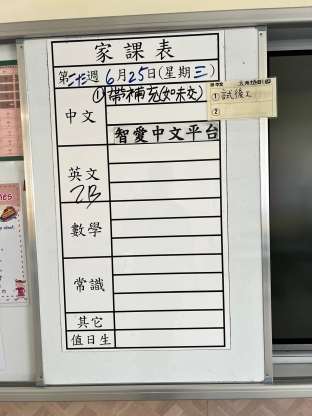 家課表
第二十三週 6月25日(星期三)
中文
①帶補充(如未交)
①試後工
②
智愛中文平台
英文
2B
數學
常識
其它
值日生